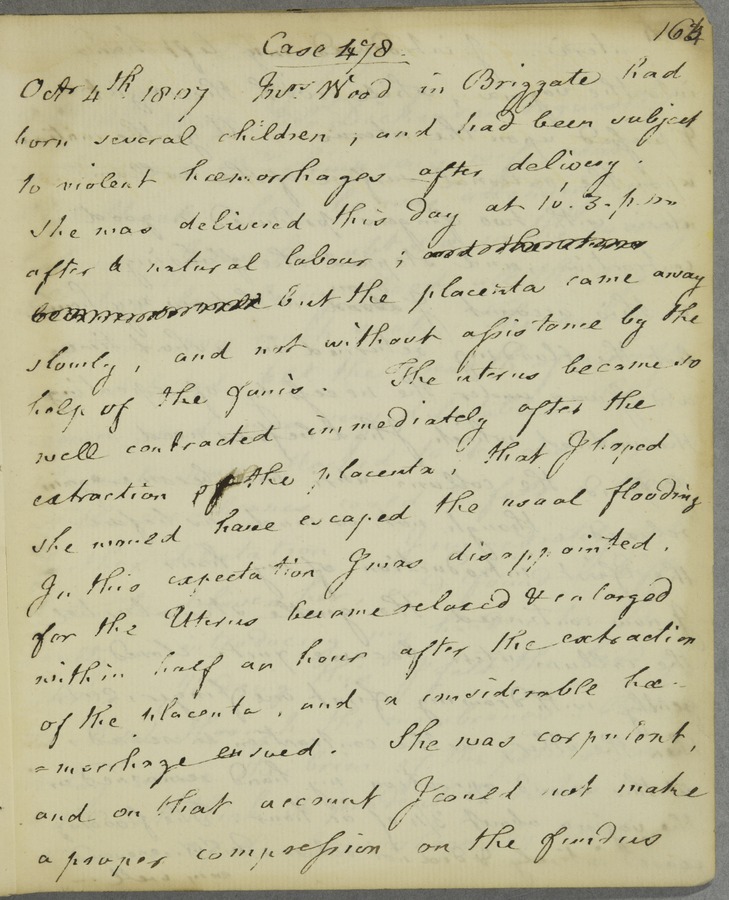 164
Case 498.
Octr 4th 1807 Mrs Wood in Briggate had
born several children, and had been subject
to violent hæmorrhages after delivery.
She was delivered this Day at 10.3. p.m
after a natural labour;
but the placenta came away
slowly, and not without assistance by the
help of the funis. The uterus became so
well contracted immediately after the
extraction of the placenta, that I hoped
she would have escaped the usual flooding
In this expectation I was disappointed.
for the Uterus became relaxed & enlarged
within half an hour after the extraction
of the placenta, and a considerable hæ-
=morrhage ensued. She was corpulent,
and on that account I could not make
a proper compression on the fundus